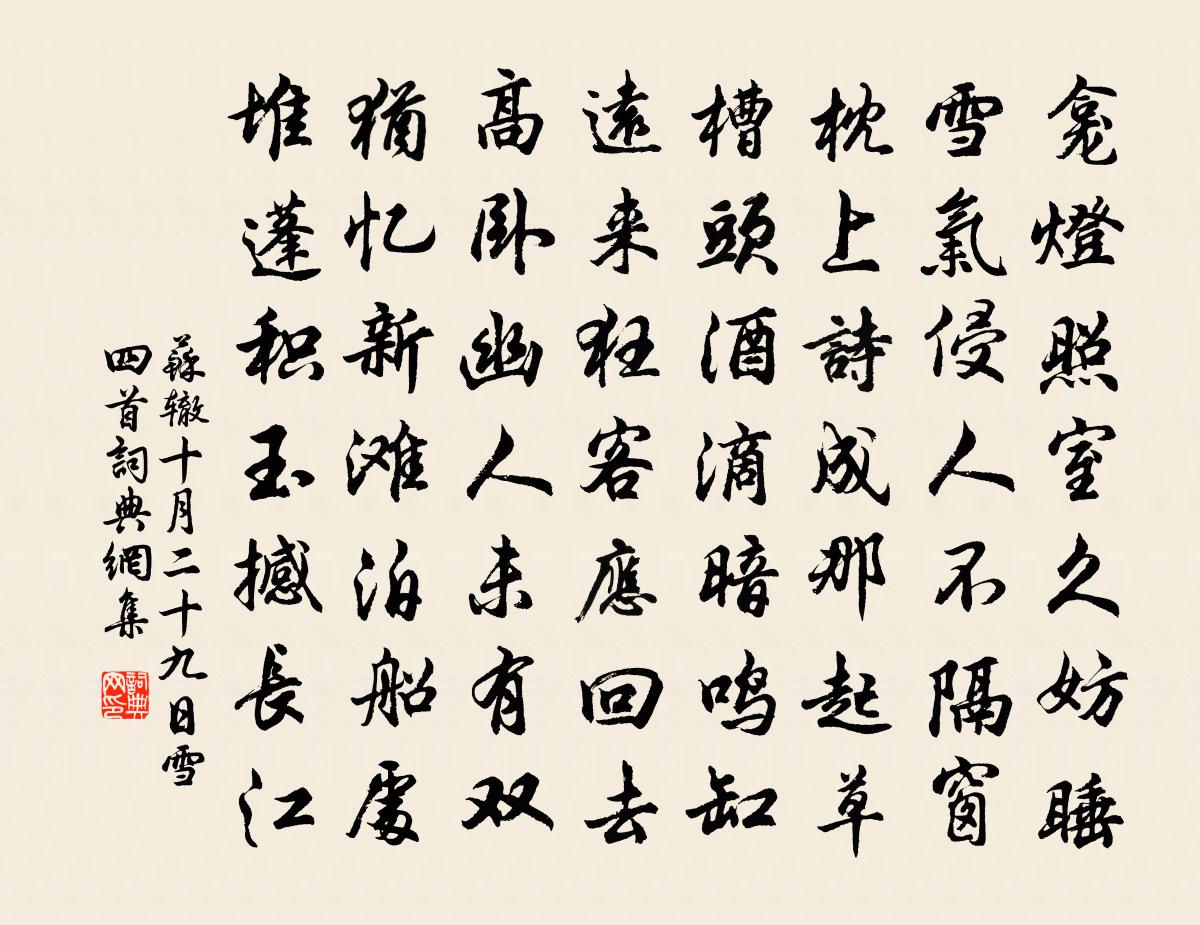 龛燈照室久妨睡
雪氣侵人不隔窗
枕上詩成那起草
槽頭酒滴暗鸣缸
遠来狂客應回去
高卧幽人未有双
猶忆新滩泊船處
堆蓬积玉撼長江
蘇辙十月二十九日雪
四首詞典網集
詞典
网印